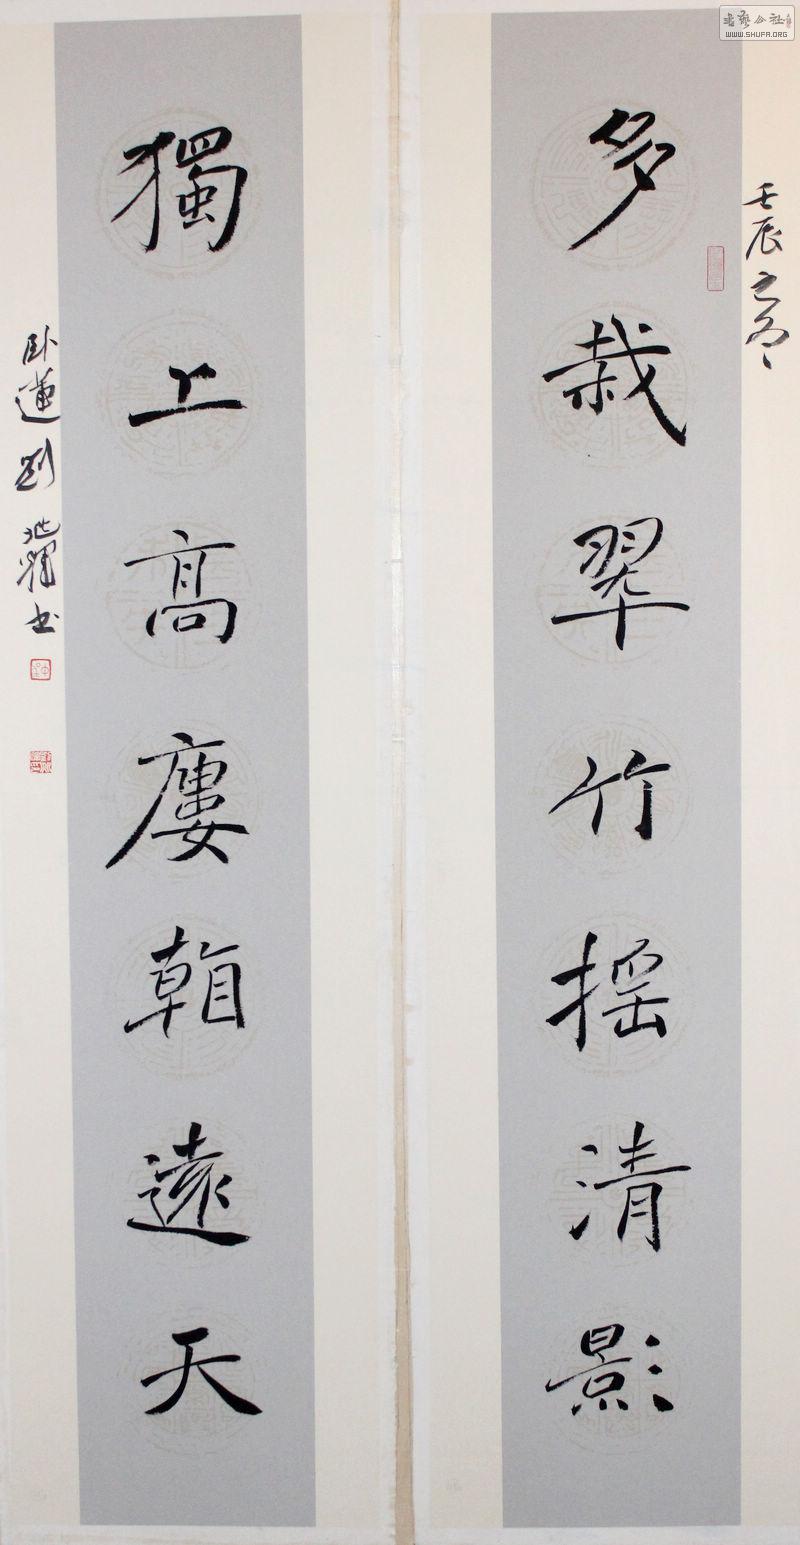 壬辰之冬
多栽翠竹搖清影
獨上高廔朝遠天
卧蓮劉 書
書藝公社
WWW.SHUFA.ORG